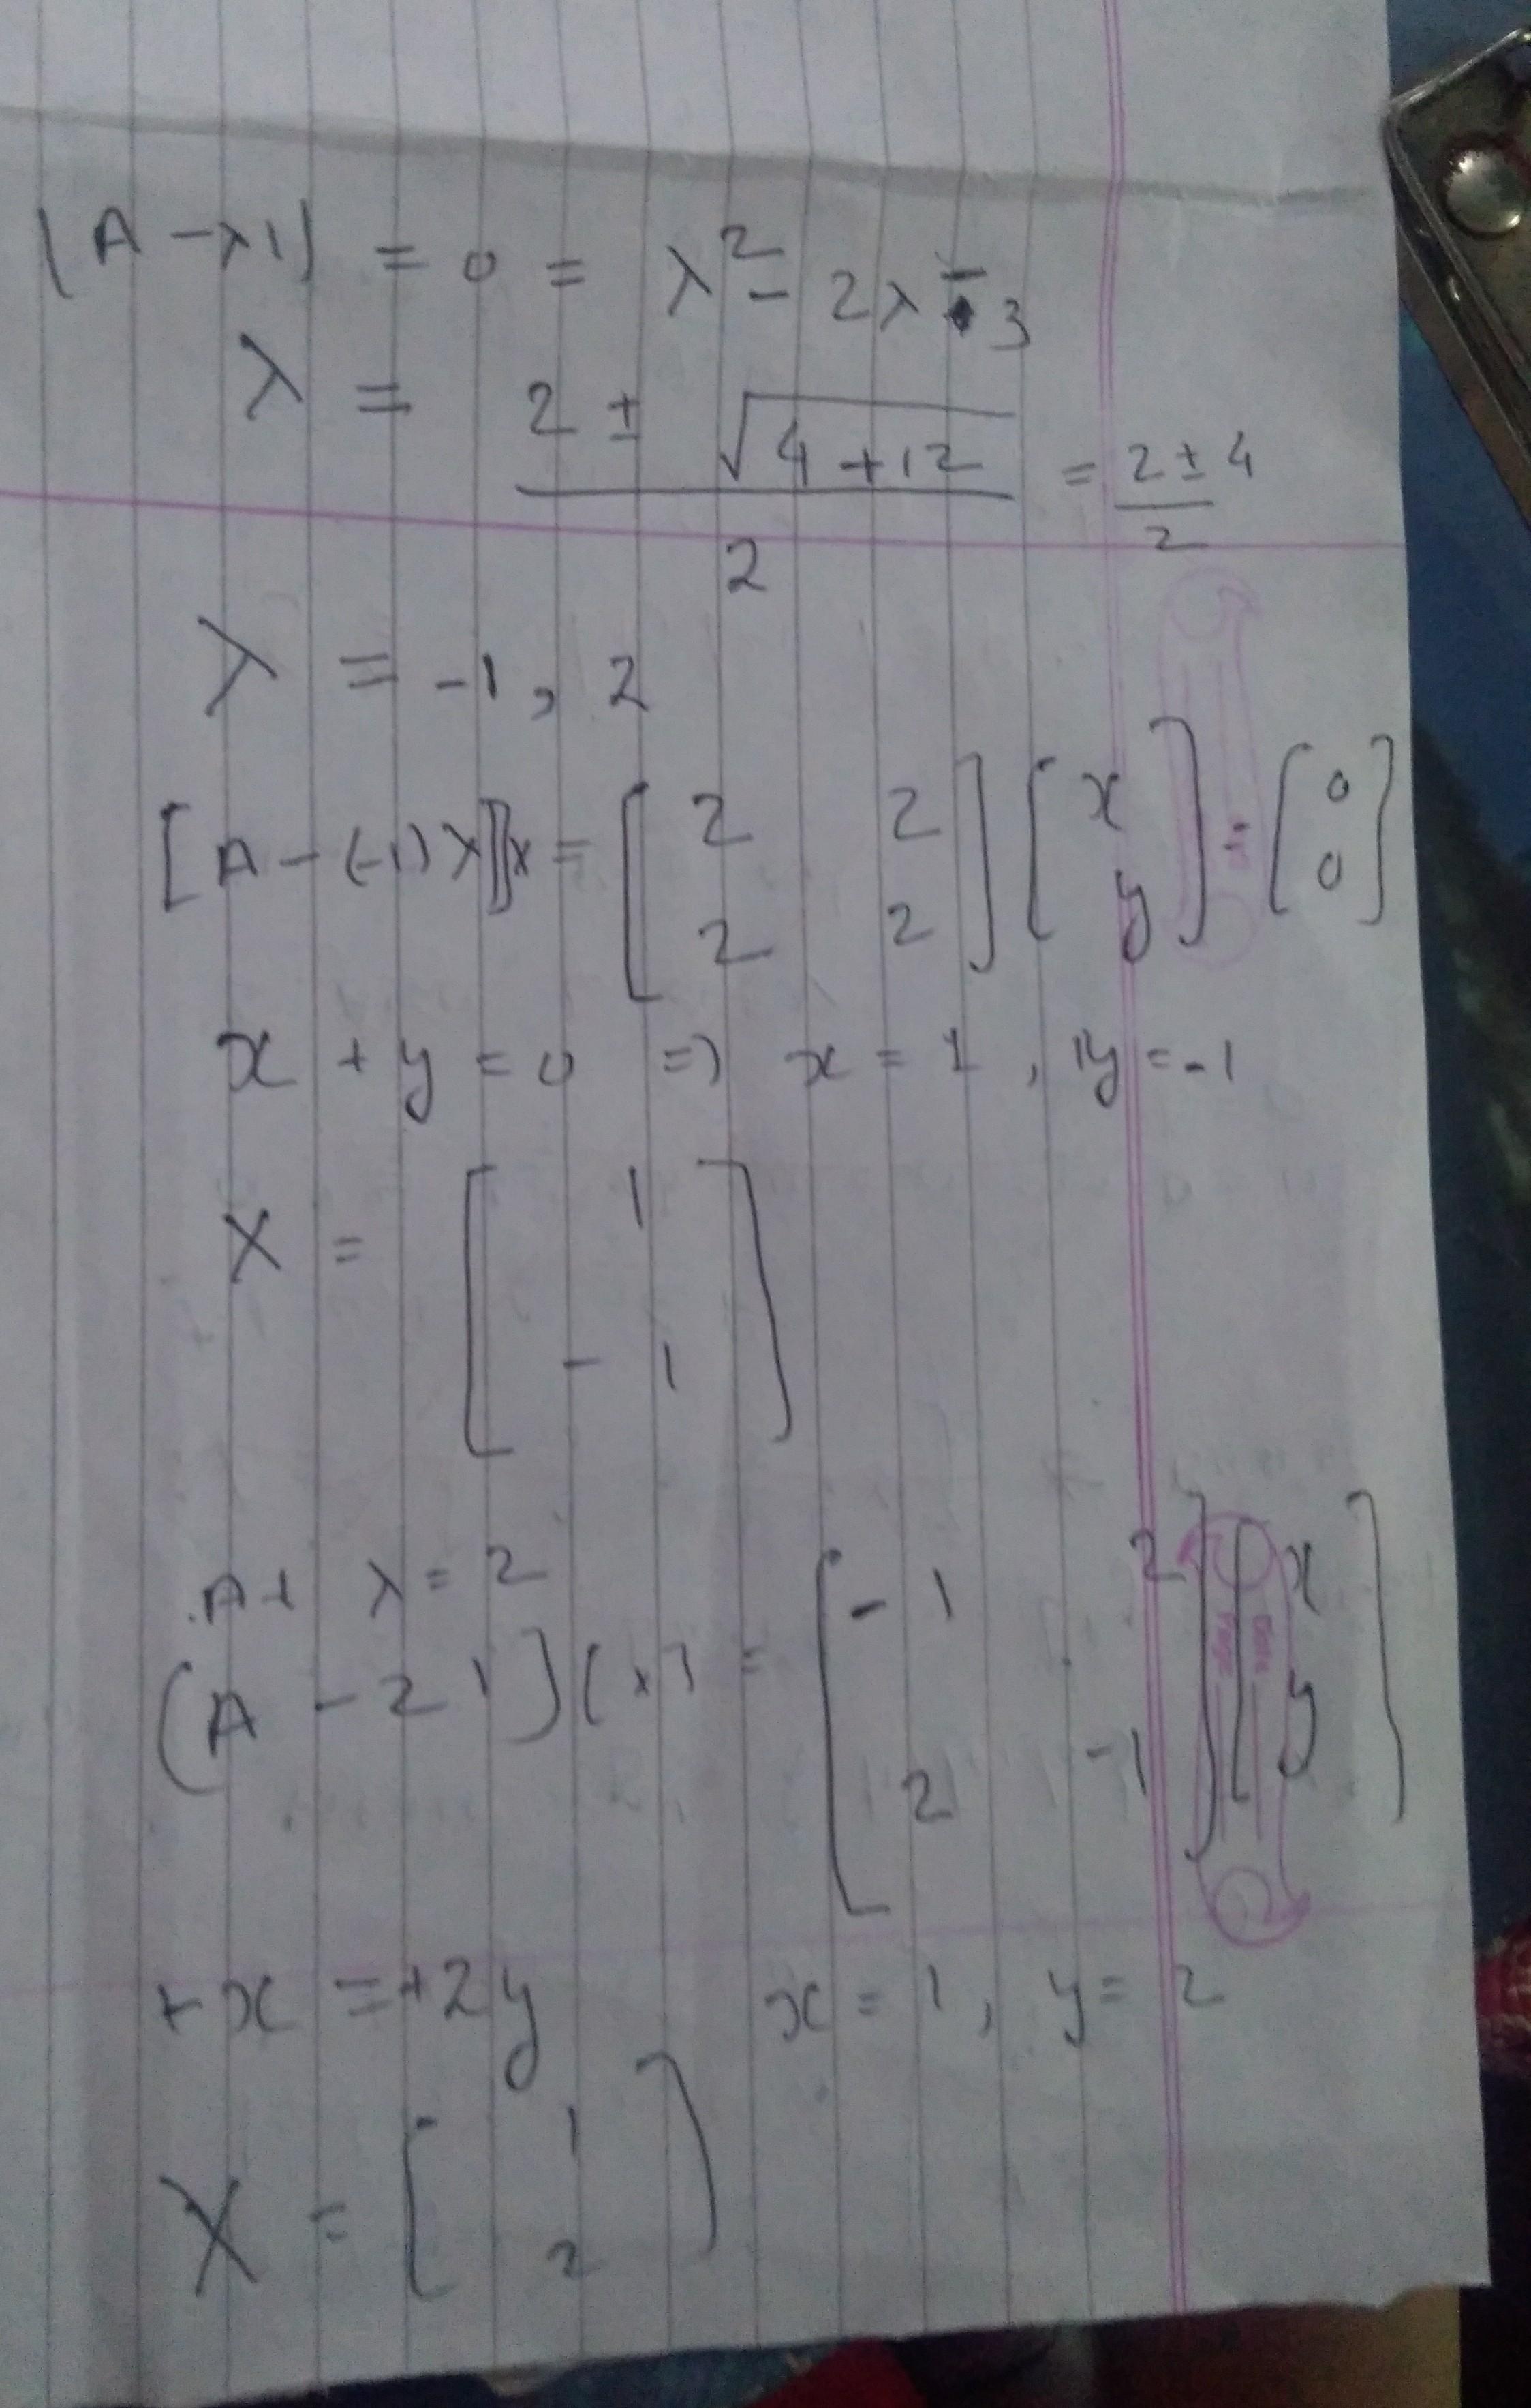 |A - λ1| = 0 = λ² - 2λ - 3
λ = (2 ± √(4 + 12)) / 2 = (2 ± 4) / 2
λ = -1, 2
[A - (-1) λ]x = [2 2; 2 2] [x; y] = [0; 0]
x + y = 0 => x = 1, y = -1
X = [1; -1]
At λ = 2
(A - 2 1] (x] = [-1 2; 2 -1] [x; y]
+x = +2y x = 1, y = 2
X = [1; 2]
Page
Date